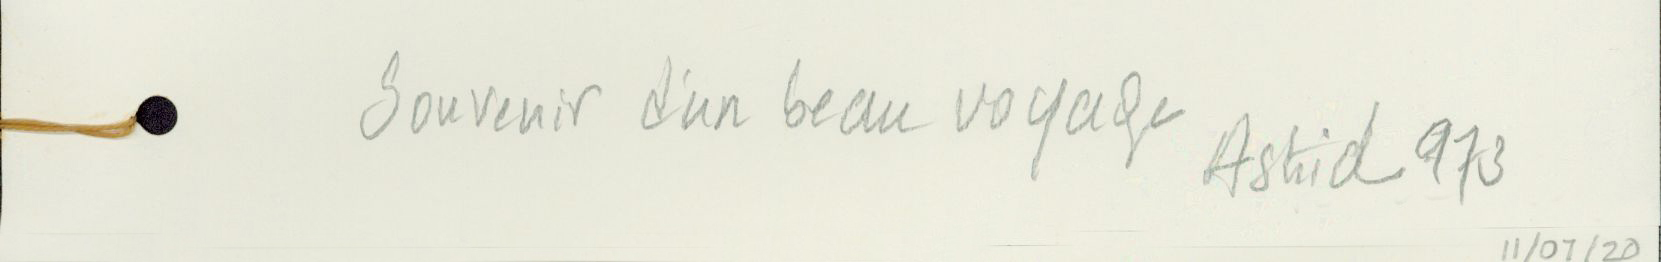 Souvenir d'un beau voyage
Astrid 973
11/07/20